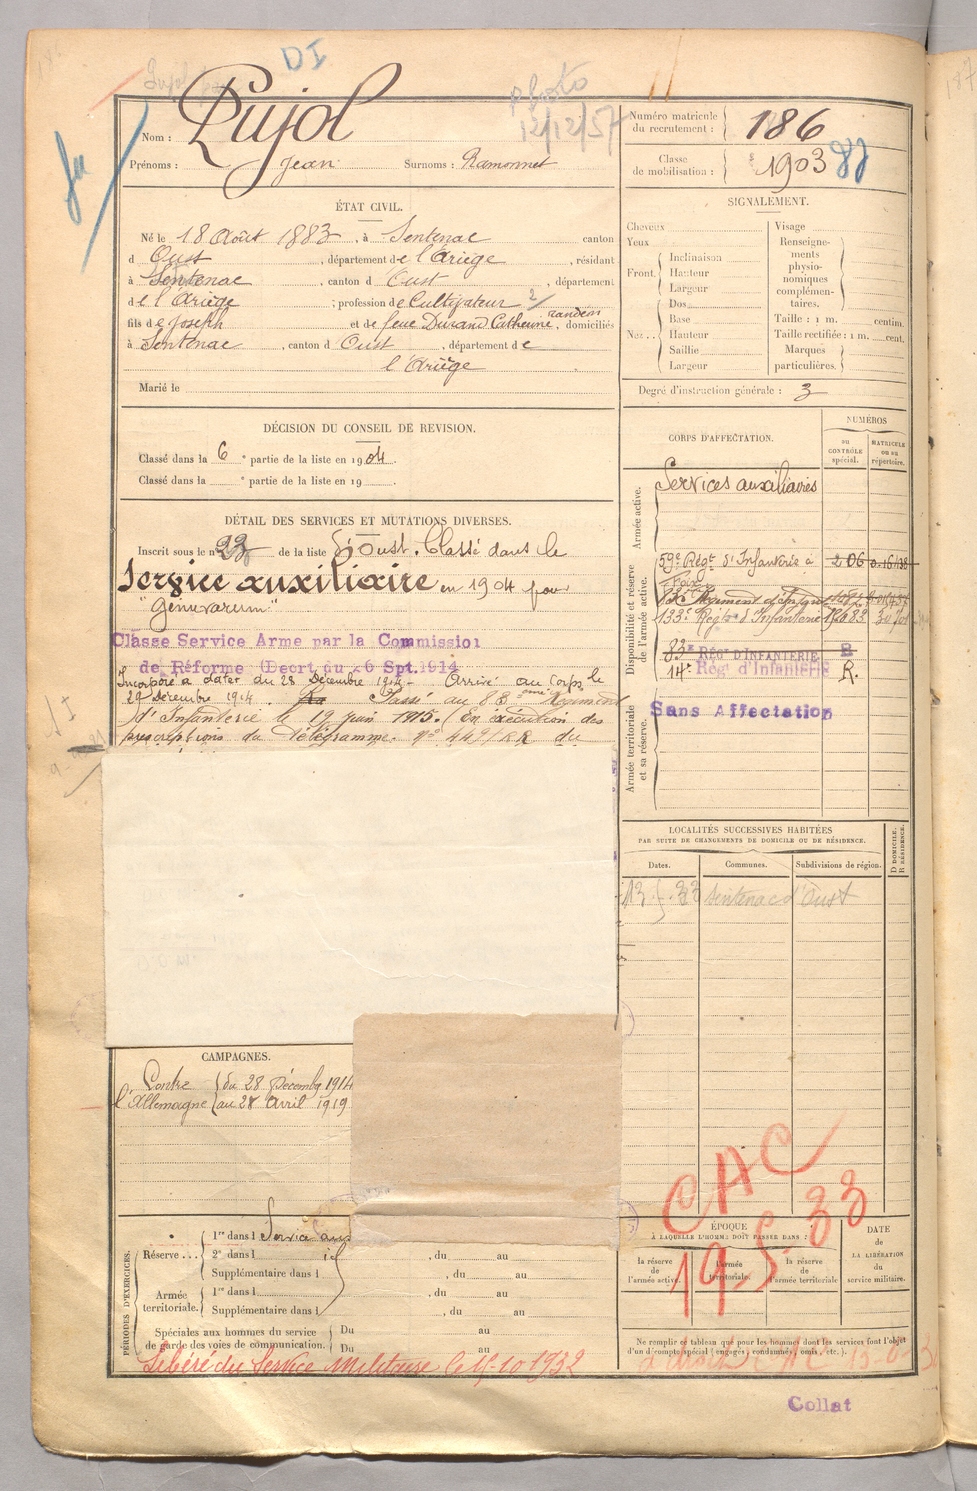 DI
Photo
12/12/57
Nom : Pujol
Prénoms : Jean Surnoms : Ramonnet
Numéro matricule du recrutement : 186
Classe de mobilisation : 1903
ÉTAT CIVIL.
Né le 18 Août 1883, à Sentenac canton
d'Oust, département de l'Ariège, résidant
à Sentenac, canton d'Oust, département
de l'Ariège; profession de Cultivateur
fils de Joseph et de feue Durand Catherine, domiciliés
à Sentenac, canton d'Oust, département de
l'Ariège
Marié le
SIGNALEMENT.
Cheveux
Yeux
Front. Inclinaison
Hauteur
Largeur
Nez.. Dos
Base
Hauteur
Saillie
Largeur
Visage
Renseigne-
ments
physio-
nomiques
complémen-
taires.
Taille : 1 m. centim.
Taille rectifiée : 1 m. cent.
Marques
particulières.
Degré d'instruction générale : 3
DÉCISION DU CONSEIL DE REVISION.
Classé dans la 6e partie de la liste en 1904.
Classé dans la e partie de la liste en 19
DÉTAIL DES SERVICES ET MUTATIONS DIVERSES.
Inscrit sous le n° 23 de la liste d'Oust. Classé dans le
Service auxiliaire en 1904 pour
"genuvarum"
Classe Service Arme par la Commission
de Réforme (Decrt du 26 Spt.1914
Incorporé à dater du 28 Décembre 1914. Arrivé au corps le
29 Décembre 1914. Passé au 83eme Régiment
d'Infanterie le 19 juin 1915. (En exécution des
prescriptions du télégramme n° 449/RR du
CORPS D'AFFECTATION.
NUMÉROS
DU CONTRÔLE spécial.
MATRICULE OU AU répertoire.
Armée active.
Services auxiliaires
Disponibilité et réserve de l'armée active.
59e Régt d'Infanterie à Foix 206
133e Régt d'Infanterie
83e RÉGt D'INFANTERIE
14e Rég d'Infanterie R.
Armée territoriale et sa réserve.
Sans Affectation
LOCALITÉS SUCCESSIVES HABITÉES
PAR SUITE DE CHANGEMENTS DE DOMICILE OU DE RÉSIDENCE.
D DOMICILE. R RÉSIDENCE.
Dates. Communes. Subdivisions de région.
Sentenac d'Oust
CAMPAGNES.
Contre l'Allemagne
du 28 Décembre 1914
au 28 Avril 1919
CAC
19-5-33
PÉRIODES D'EXERCICES.
Réserve...
1re dans l Service aux
2e dans l id
, du au
Supplémentaire dans l , du au
Armée territoriale.
1re dans l , du au
Supplémentaire dans l , du au
Spéciales aux hommes du service
de garde des voies de communication.
Du au
Du au
Libéré du Service Militaire le 15-10-1932
ÉPOQUE
À LAQUELLE L'HOMME DOIT PASSER DANS :
la réserve de l'armée active.
l'armée territoriale.
la réserve de l'armée territoriale
DATE
de
LA LIBÉRATION
du
service militaire.
Ne remplir ce tableau que pour les hommes dont les services font l'objet
d'un décompte spécial (engagés, condamnés, omis, etc.).
Collat